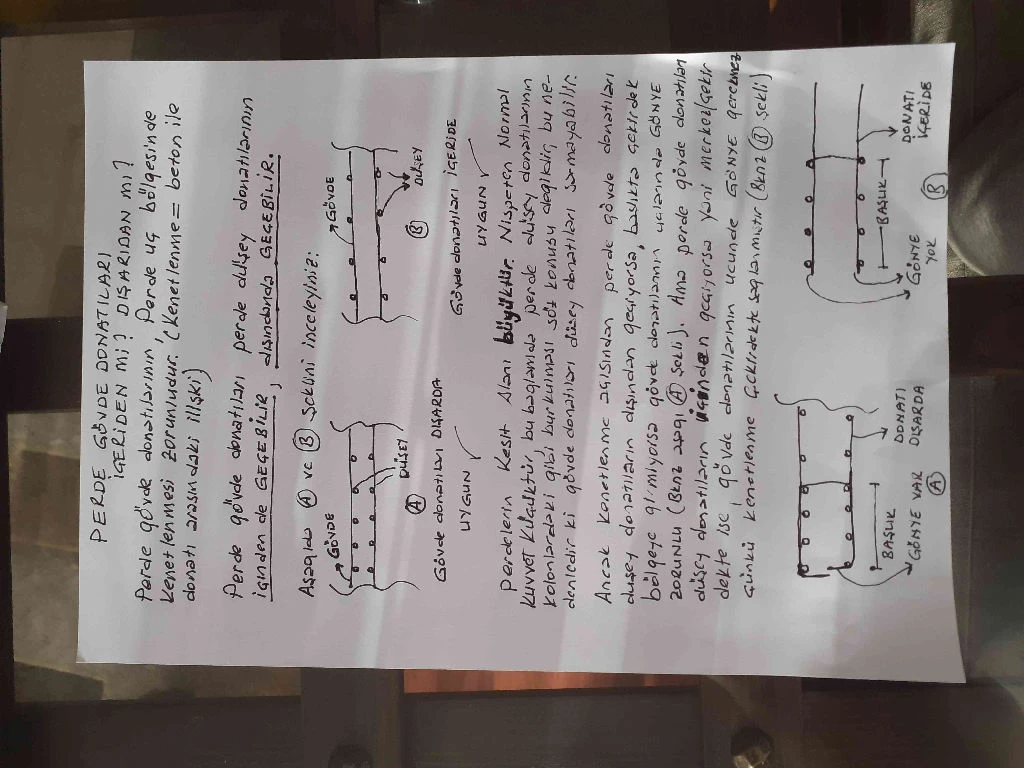 PERDE GÖVDE DONATILARI
İÇERİDEN Mİ? DIŞARIDAN MI?
Perde gövde donatılarının, Perde uç bölgesinde
kenetlenmesi zorunludur. (Kenetlenme = beton ile
donatı arasındaki ilişki)
Perde gövde donatıları perde düşey donatılarının
içinden de GEÇEBİLİR, dışından da GEÇEBİLİR.
Aşağıda A ve B şeklini inceleyiniz:
GÖVDE
DÜŞEY
A
Gövde donatıları DIŞARDA
UYGUN
GÖVDE
DÜŞEY
B
Gövde donatıları İÇERİDE
UYGUN
Perdelerin Kesit Alanı büyüktür. Nispeten Normal
kuvvet küçüktür, bu bağlamda perde düşey donatılarının
kolonlardaki gibi burkulması söz konusu değildir, bu ne-
denledir ki gövde donatıları düşey donatıları sarmayabilir.
Ancak kenetlenme açısından perde gövde donatıları
düşey donatıların dışından geçiyorsa, başlıkta çekirdek
bölgeye girmiyorsa gövde donatılarının uçlarında GÖNYE
ZORUNLU (Bknz aşağı A şekli). Ama perde gövde donatıları
düşey donatıların içinden geçiyorsa yani merkez/çekir
dekte ise, gövde donatılarının ucunde GÖNYE gerekmez
çünkü kenetlenme çekirdekte sağlanmıştır (Bknz B şekli)
BAŞLIK
GÖNYE VAR
DONATI
DIŞARDA
A
BAŞLIK
GÖNYE
YOK
DONATI
İÇERİDE
B